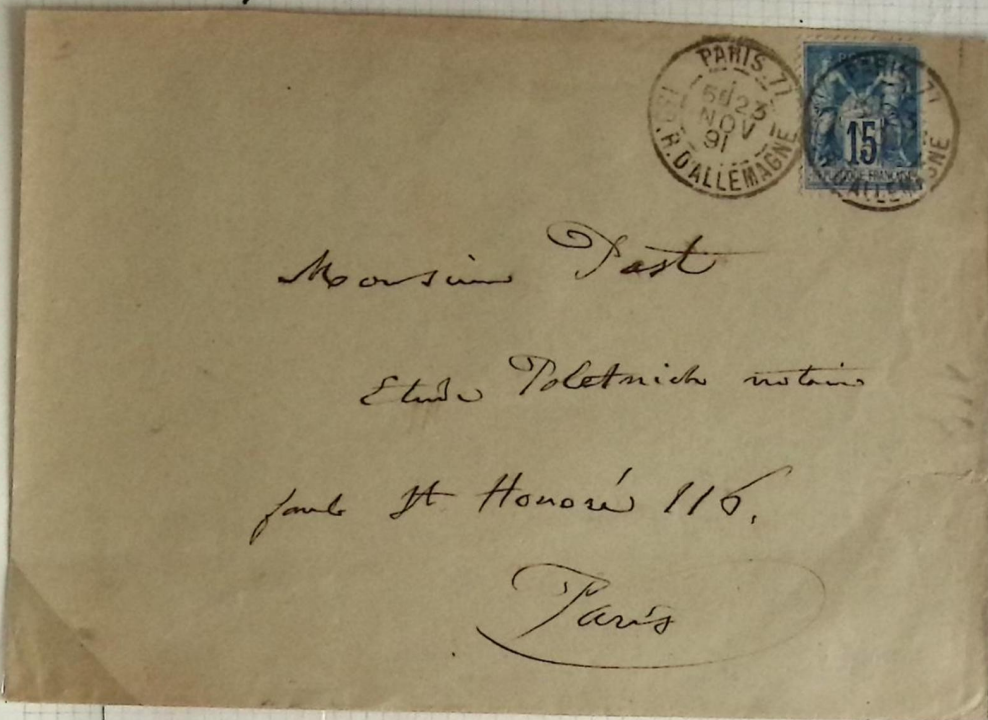 PARIS.77
6E 23
NOV
91
R. D'ALLEMAGNE
PARIS.77
15
R. D'ALLEMAGNE
Monsieur Past
Etude Poletnich notaire
faub St Honoré 116.
Paris